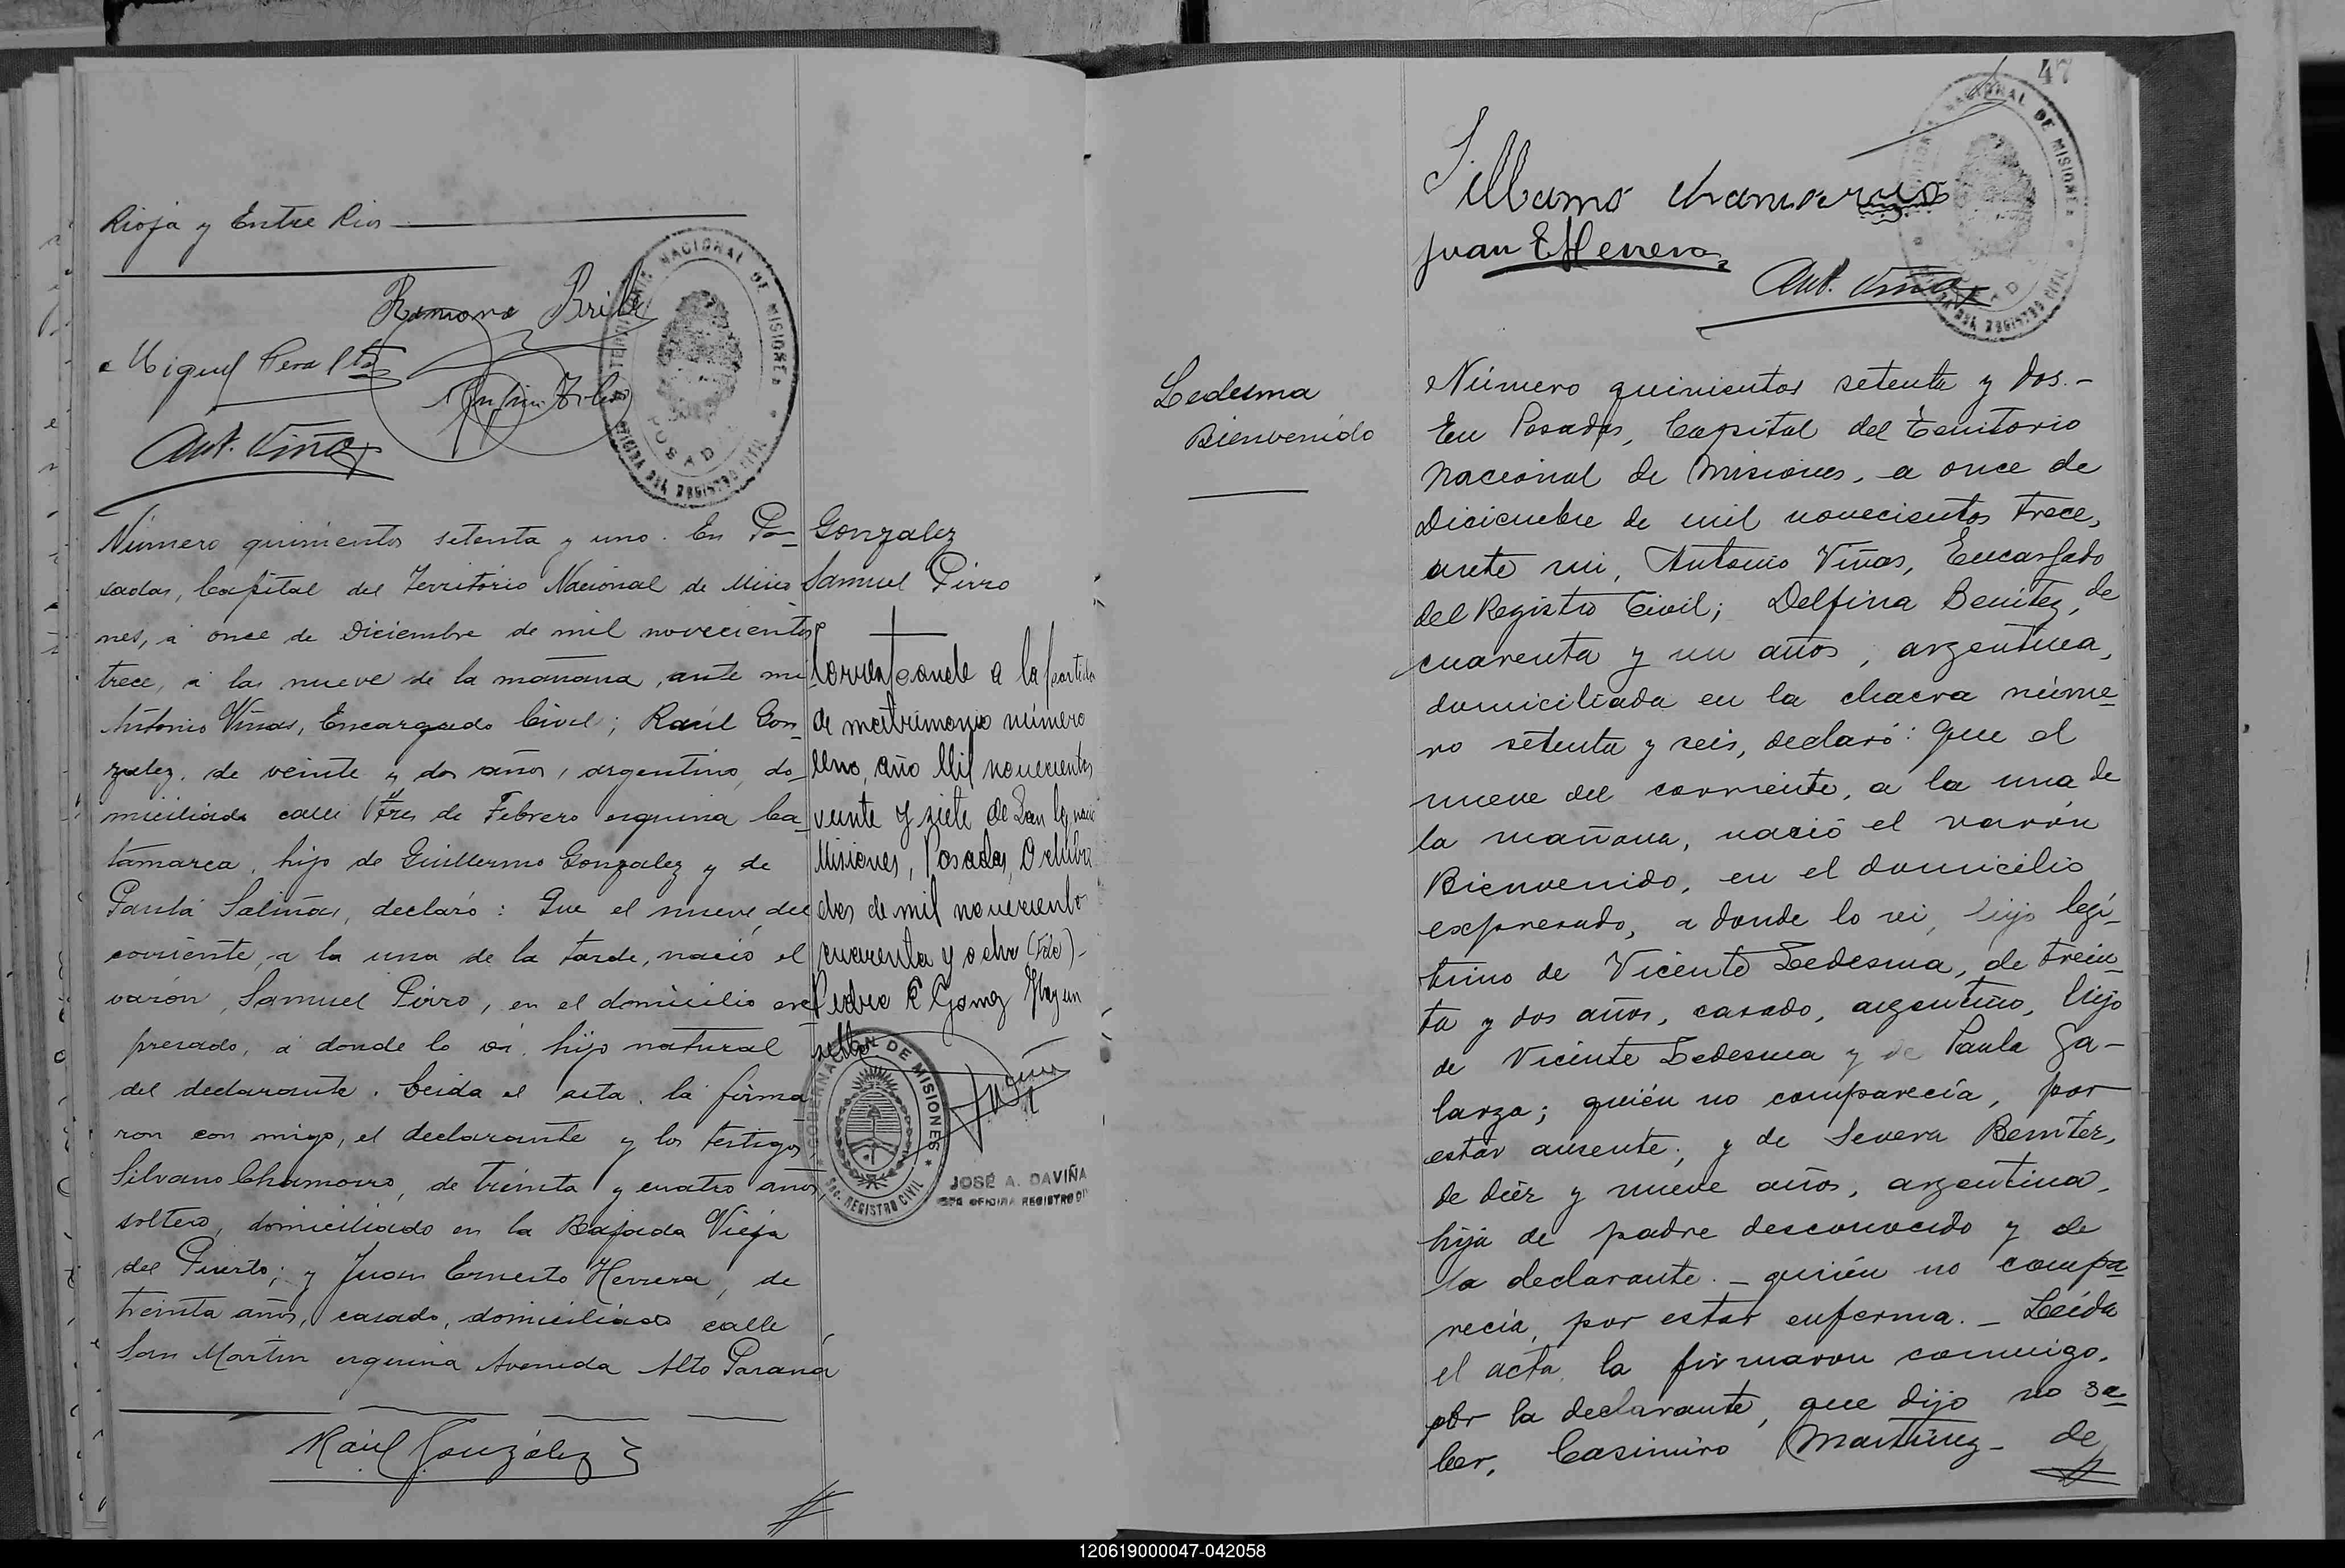 Rioja y Entre Rios
Ramona
Miguel Peralta
Ant. Viñas
TERRITORIO NACIONAL DE MISIONES
POSADAS
OFICINA DEL REGISTRO CIVIL
Número quinientos setenta y uno. En Po-
sadas, Capital del Territorio Nacional de Misio
nes, á once de Diciembre de mil novecientos
trece, á las nueve de la mañana, ante mi
Antonio Viñas, Encargado Civil; Raúl Gon-
zalez, de veinte y dos años, argentino, do-
miciliado calle tres de Febrero esquina Ca-
tamarca, hijo de Guillermo Gonzalez y de
Paula Salinas, declaró: Que el nueve del
corriente, a la una de la tarde, nació el
varón, Samuel Pirro, en el domicilio ex-
presado, á donde lo ví, hijo natural
del declarante. Leida el acta, la firma
ron con migo, el declarante y los testigos,
Silvano Chamorro, de treinta y cuatro años,
soltero, domiciliado en la Bajada Vieja
del Puerto; y Juan Ernesto Herrera, de
treinta años, casado, domiciliado calle
San Martin esquina Avenida Alto Paraná
Raúl González
Gonzalez
Samuel Pirro
Corresponde a la partida
de matrimonio número
Uno, año Mil novecientos
veinte y siete de San Ignacio
Misiones, Posadas, Octubre
dos de mil novecientos
cuarenta y ocho (Fdo)-
Pedro E Gomez
sello
GOBERNACION DE MISIONES
REGISTRO CIVIL
JOSÉ A. DAVIÑA
JEFE OFICINA REGISTRO CI
47
TERRITORIO NACIONAL DE MISIONES
OFICINA DEL REGISTRO CIVIL
Silbano chamorro
Juan E Herrera
Ant. Viñas
Ledesma
Bienvenido
Número quinientos setenta y dos.-
En Posadas, Capital del Territorio
Nacional de Misiones, a once de
Diciembre de mil novecientos trece,
ante mi, Antonio Viñas, Encargado
del Registro Civil; Delfina Benitez, de
cuarenta y un años, argentina,
domiciliada en la chacra núme-
ro setenta y seis, declaró: Que el
nueve del corriente, a la una de
la mañana, nació el varón
Bienvenido, en el domicilio
expresado, a donde lo vi, hijo legí-
timo de Vicente Ledesma, de trein-
ta y dos años, casado, argentino, hijo
de Vicente Ledesma y de Paula Ga-
larza; quién no comparecía, por
estar ausente; y de Severa Benitez,
de diez y nueve años, argentina,
hija de padre desconocido y de
la declarante.- quién no compa-
recía, por estar enferma.- Leída
el acta, la firmaron conmigo,
por la declarante, que dijo no sa-
ber, Casimiro Martinez- de
120619000047-042058